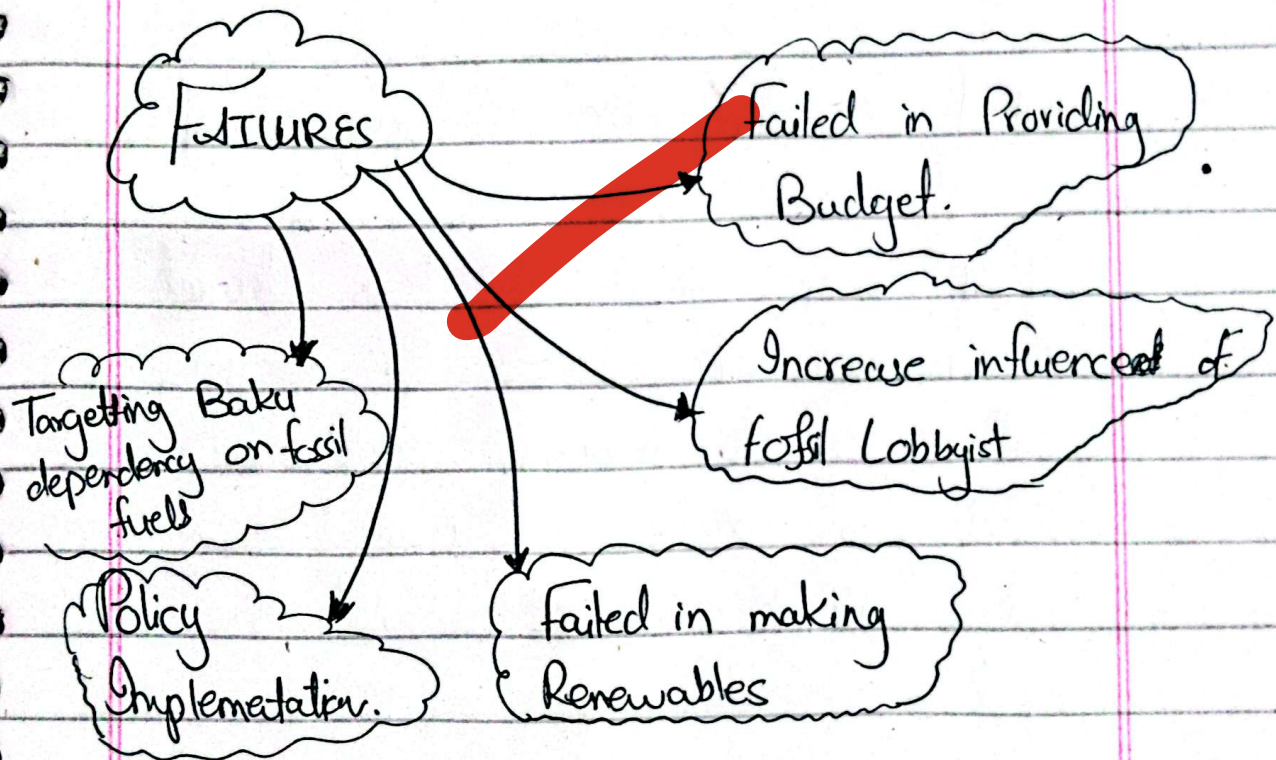 FAILURES
Failed in Providing
Budget.
Increase influenced of
fossil Lobbyist
Targetting Baku
dependency on fossil
fuels
Policy
Implemetation.
Failed in making
Renewables